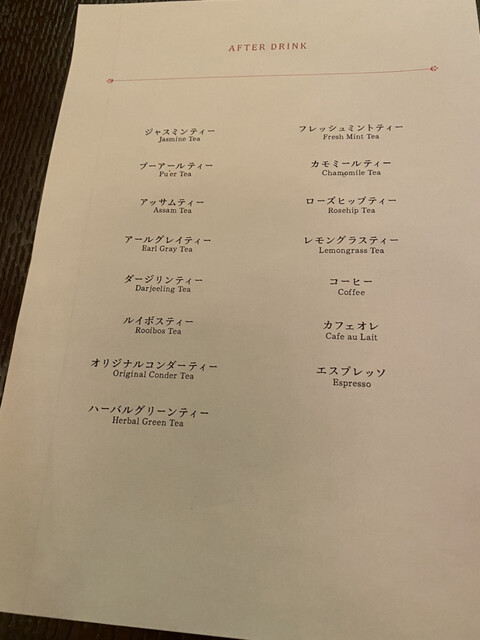 AFTER DRINK
ジャスミンティー
Jasmine Tea
プーアールティー
Pu'er Tea
アッサムティー
Assam Tea
アールグレイティー
Earl Gray Tea
ダージリンティー
Darjeeling Tea
ルイボスティー
Rooibos Tea
オリジナルコンダーティー
Original Conder Tea
ハーバルグリーンティー
Herbal Green Tea
フレッシュミントティー
Fresh Mint Tea
カモミールティー
Chamomile Tea
ローズヒップティー
Rosehip Tea
レモングラスティー
Lemongrass Tea
コーヒー
Coffee
カフェオレ
Cafe au Lait
エスプレッソ
Espresso